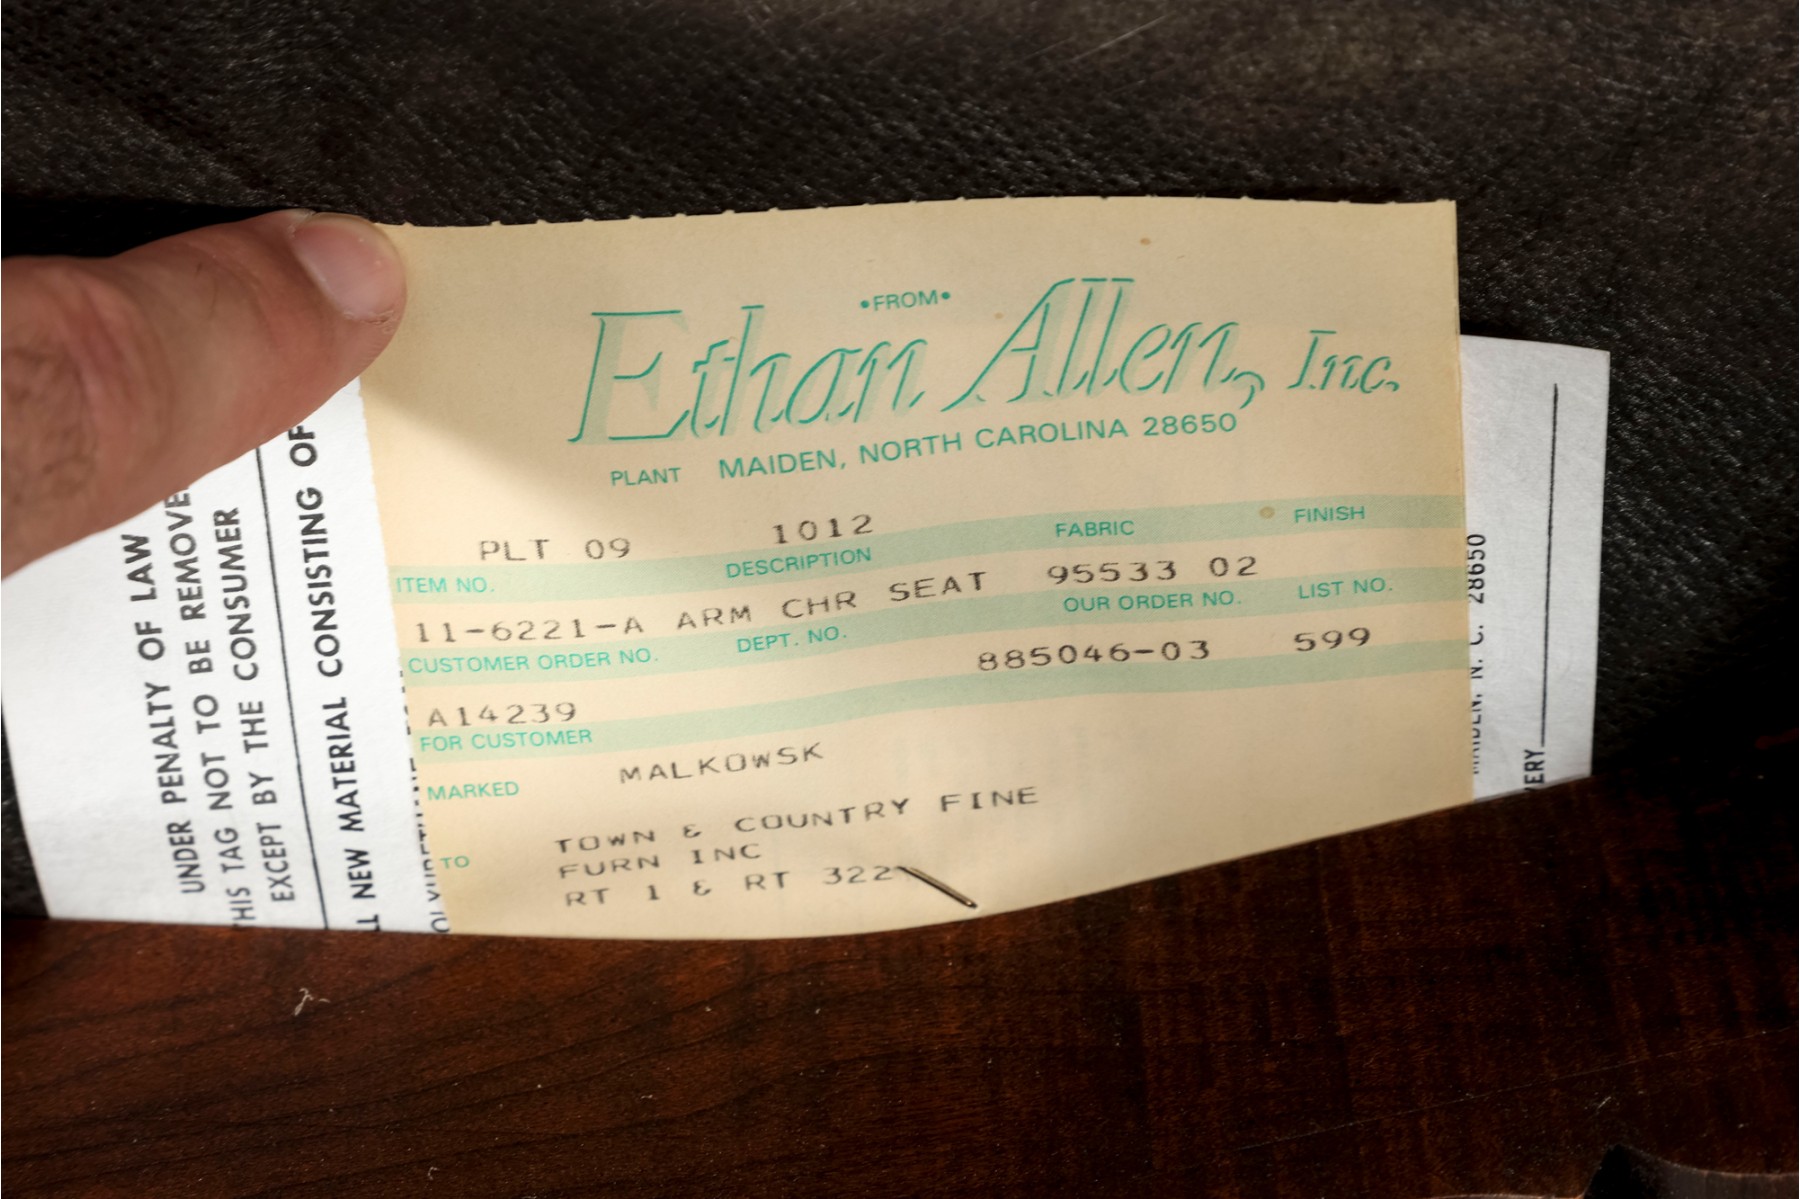 •FROM•
Ethan Allen, Inc.
PLANT MAIDEN, NORTH CAROLINA 28650
PLT 09 1012
ITEM NO. DESCRIPTION FABRIC FINISH
11-6221-A ARM CHR SEAT 95533 02
CUSTOMER ORDER NO. DEPT. NO. OUR ORDER NO. LIST NO.
885046-03 599
A14239
FOR CUSTOMER
MALKOWSK
MARKED
TOWN & COUNTRY FINE
TO FURN INC
RT 1 & RT 322
UNDER PENALTY OF LAW
HIS TAG NOT TO BE REMOVE
EXCEPT BY THE CONSUMER
LL NEW MATERIAL CONSISTING OF
MAIDEN, N. C. 28650
VERY